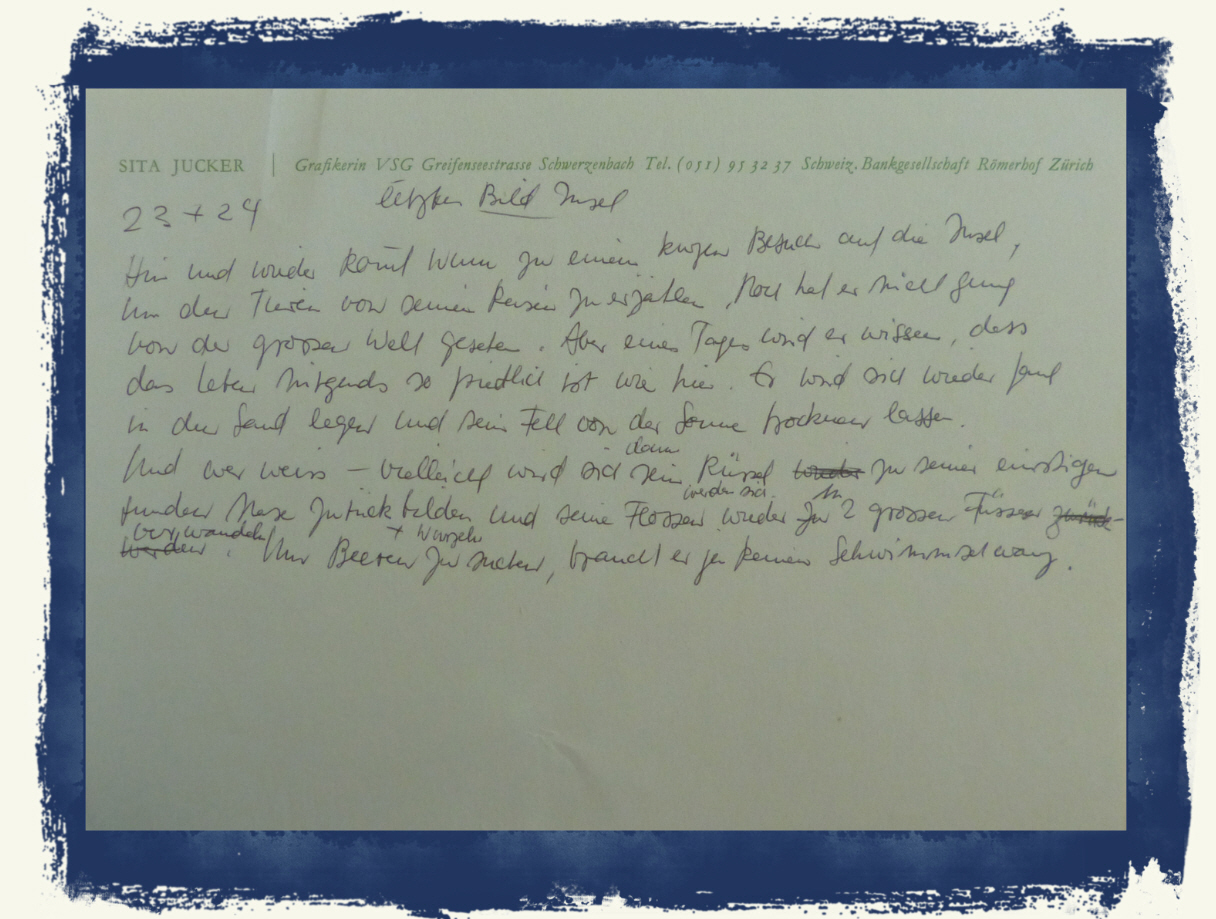 SITA JUCKER | Grafikerin VSG Greifenseestrasse Schwerzenbach Tel. (051) 95 32 37 Schweiz. Bankgesellschaft Römerhof Zürich
23 + 24 letztes Bild Insel
Hin und wieder kommt zu einem kurzen Besuch auf die Insel,
um den Tieren von seinen Reisen zu erzählen. Noch hat er nicht genug
von der grossen Welt gesehen. Aber eines Tages wird er wissen, dass
das Leben nirgends so friedlich ist wie hier. Er wird sich wieder faul
in den Sand legen und sein Fell von der Sonne trocknen lassen.
dann
Und wer weiss – vielleicht wird sich sein Rüssel wieder zu seiner einstigen
werden sich in
runden Nase zurückbilden und seine Flossen wieder zu 2 grossen Füssen zurück-
verwandeln + Wurzeln
werden. Um Beeren zu suchen, braucht er ja keinen Schwimmschwanz.